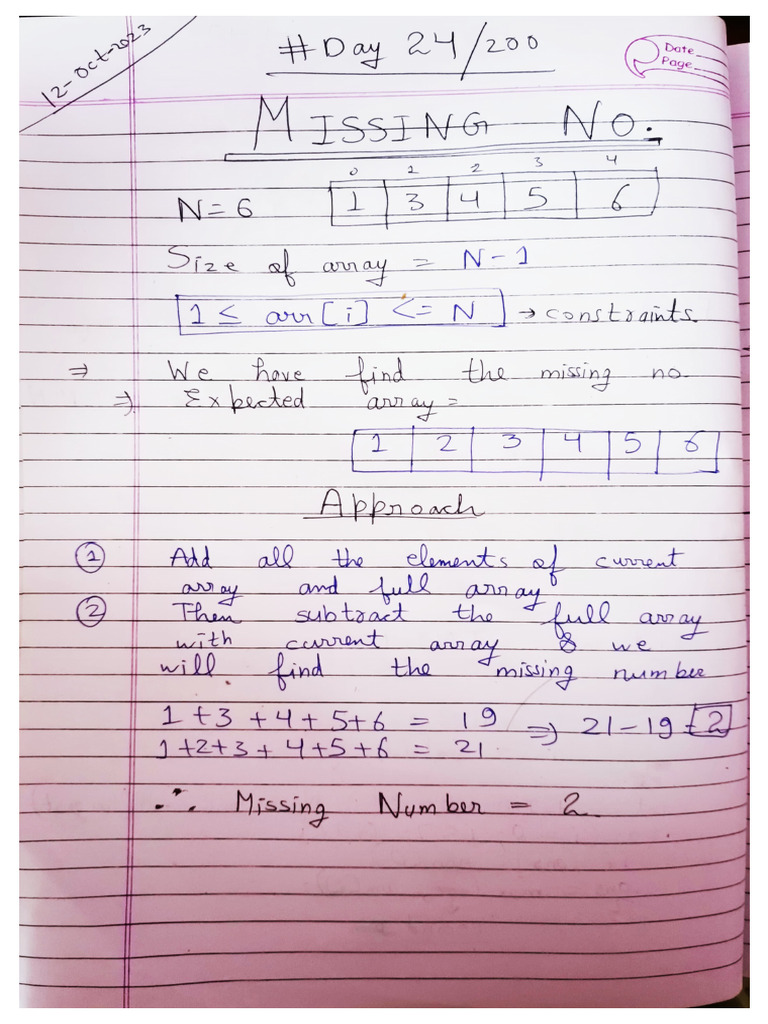 12-Oct-2023
#Day 24/200
Date
Page
MISSING NO.
0 1 2 3 4
N=6 1 3 4 5 6
Size of array = N-1
1 ≤ arr[i] <= N → constraints.
⇒ We have find the missing no.
⇒ Expected array =
1 2 3 4 5 6
Approach
① Add all the elements of current
array and full array
② Then subtract the full array
with current array & we
will find the missing number
1+3+4+5+6 = 19 ⇒ 21-19=2
1+2+3+4+5+6 = 21
∴ Missing Number = 2